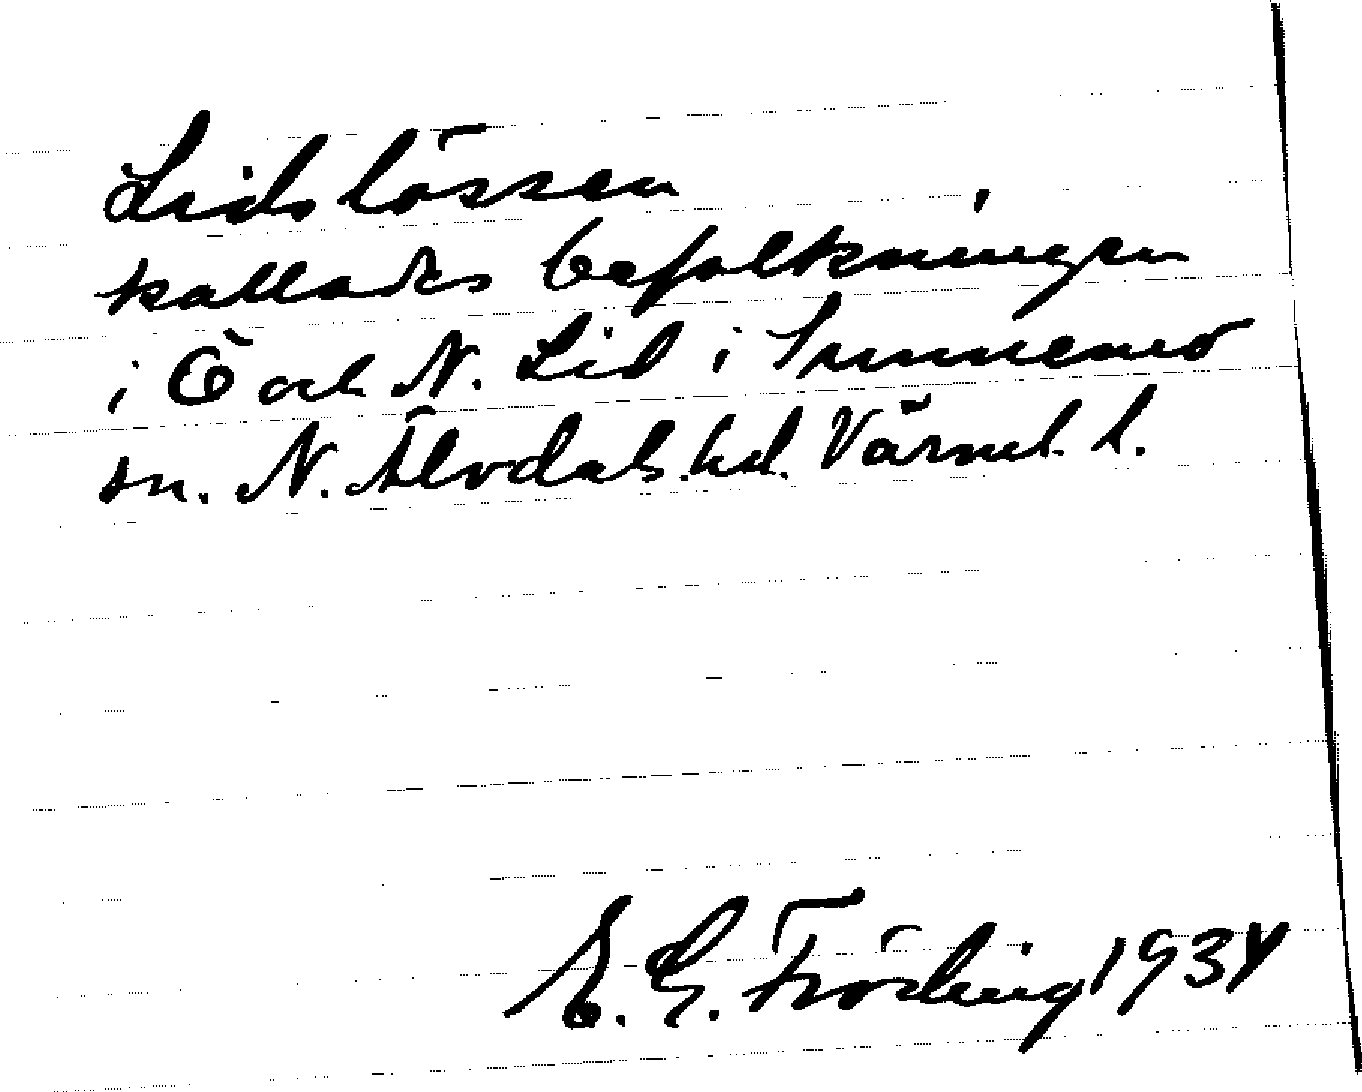 Lidslössen
kallades befolkningen
i Ö och N. Lid i Sunnemo
sn. N. Älvdals hd. Värml. l.
E. G. Fröding 1934